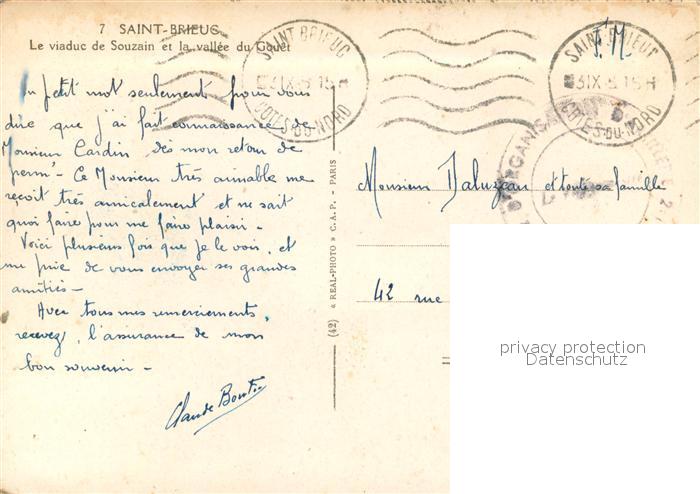 7 SAINT-BRIEUC
Le viaduc de Souzain et la vallée du Gouët
SAINT BRIEUC
CÔTES-DU-NORD
F.M.
SAINT BRIEUC
31 IX 15 H
CÔTES-DU-NORD
D'ORGANISA
Un petit mot seulement pour vous
dire que j'ai fait connaissance de
Monsieur Cardin dès mon retour de
perm - Ce Monsieur très aimable me
reçoit très amicalement et ne sait
quoi faire pour me faire plaisir -
Voici plusieurs fois que je le vois, et
me prie de vous envoyer ses grandes
amitiés -
Avec tous mes remerciements
recevez, l'assurance de mon
bon souvenir -
Claude
(42) « REAL-PHOTO » C.A.P. - PARIS
Monsieur Daluzeau et toute sa famille
42 rue
privacy protection
Datenschutz